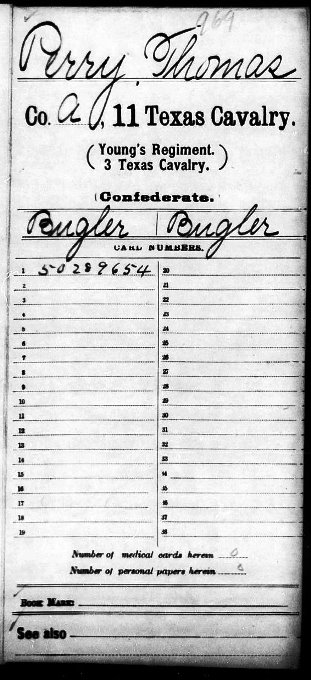 969
Perry, Thomas
Co. A, 11 Texas Cavalry.
(Young's Regiment.
3 Texas Cavalry.)
(Confederate.)
Bugler | Bugler
CARD NUMBERS.
1 50289654 20
2 21
3 22
4 23
5 24
6 25
7 26
8 27
9 28
10 29
11 30
12 31
13 32
14 33
15 34
16 35
17 36
18 37
19 38
Number of medical cards herein 0
Number of personal papers herein 0
BOOK MARK:
See also